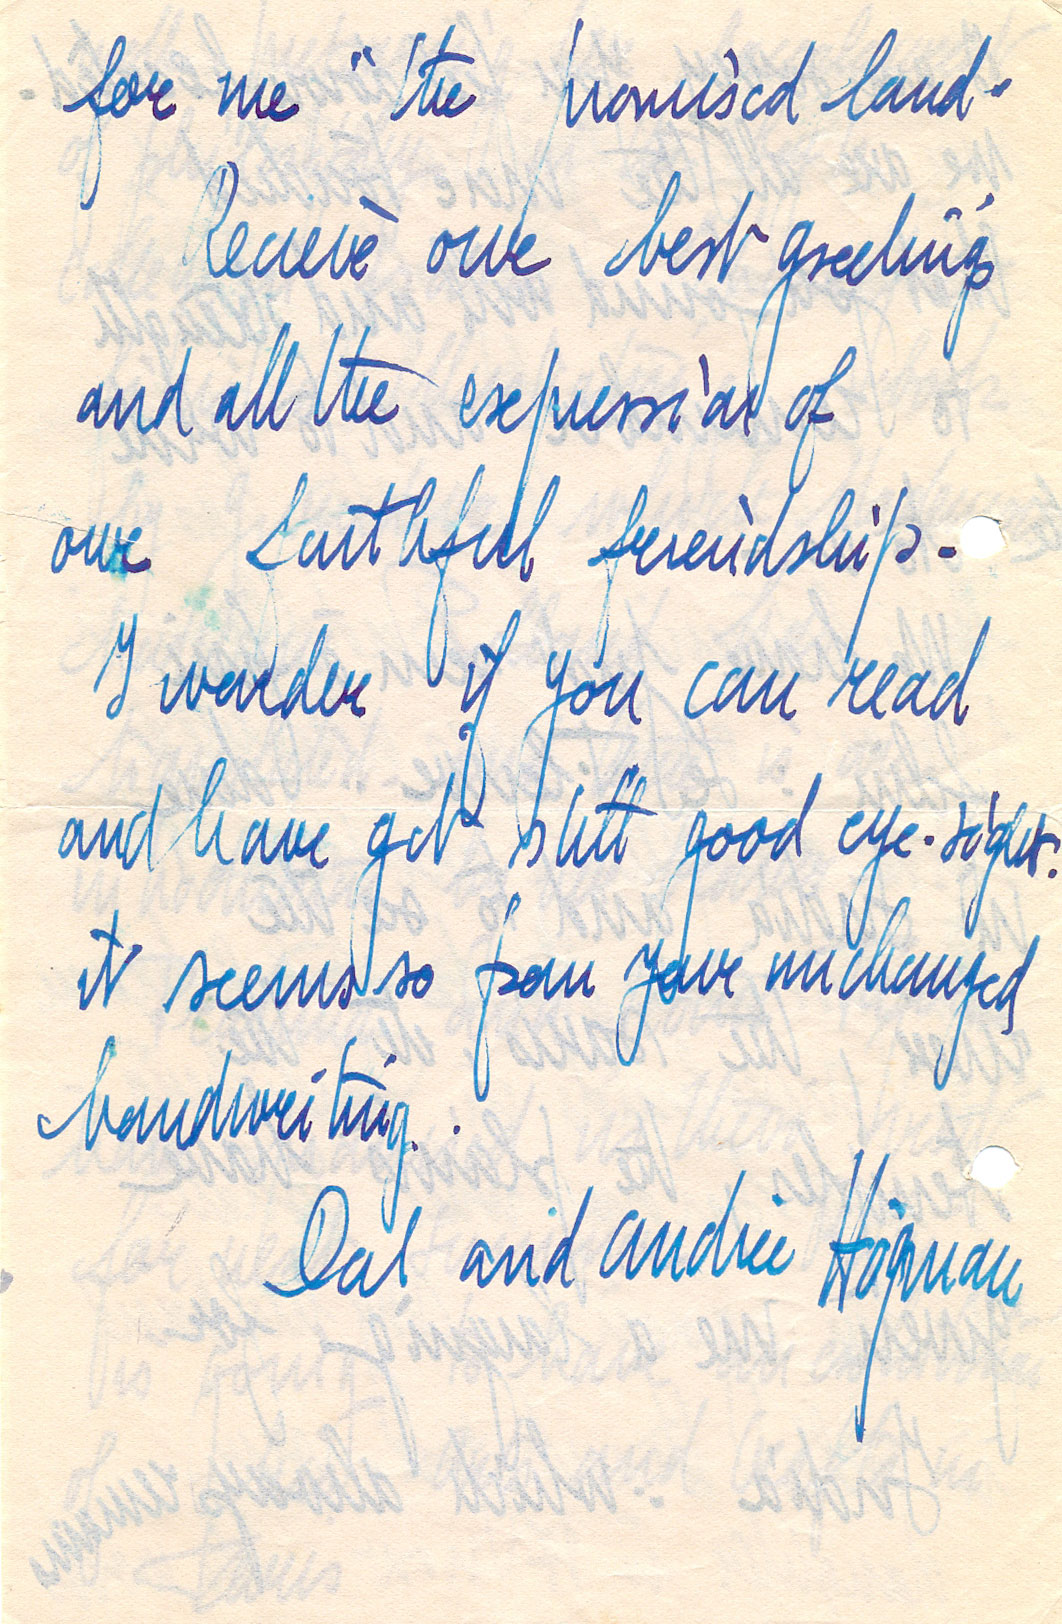 for me "the promised land.
Recieve our best greetings
and all the expression of
our faithful friendship.
I wonder if you can read
and have got still good eye-sight.
it seems so from your unchanged
handwriting.
and Andrée Högman